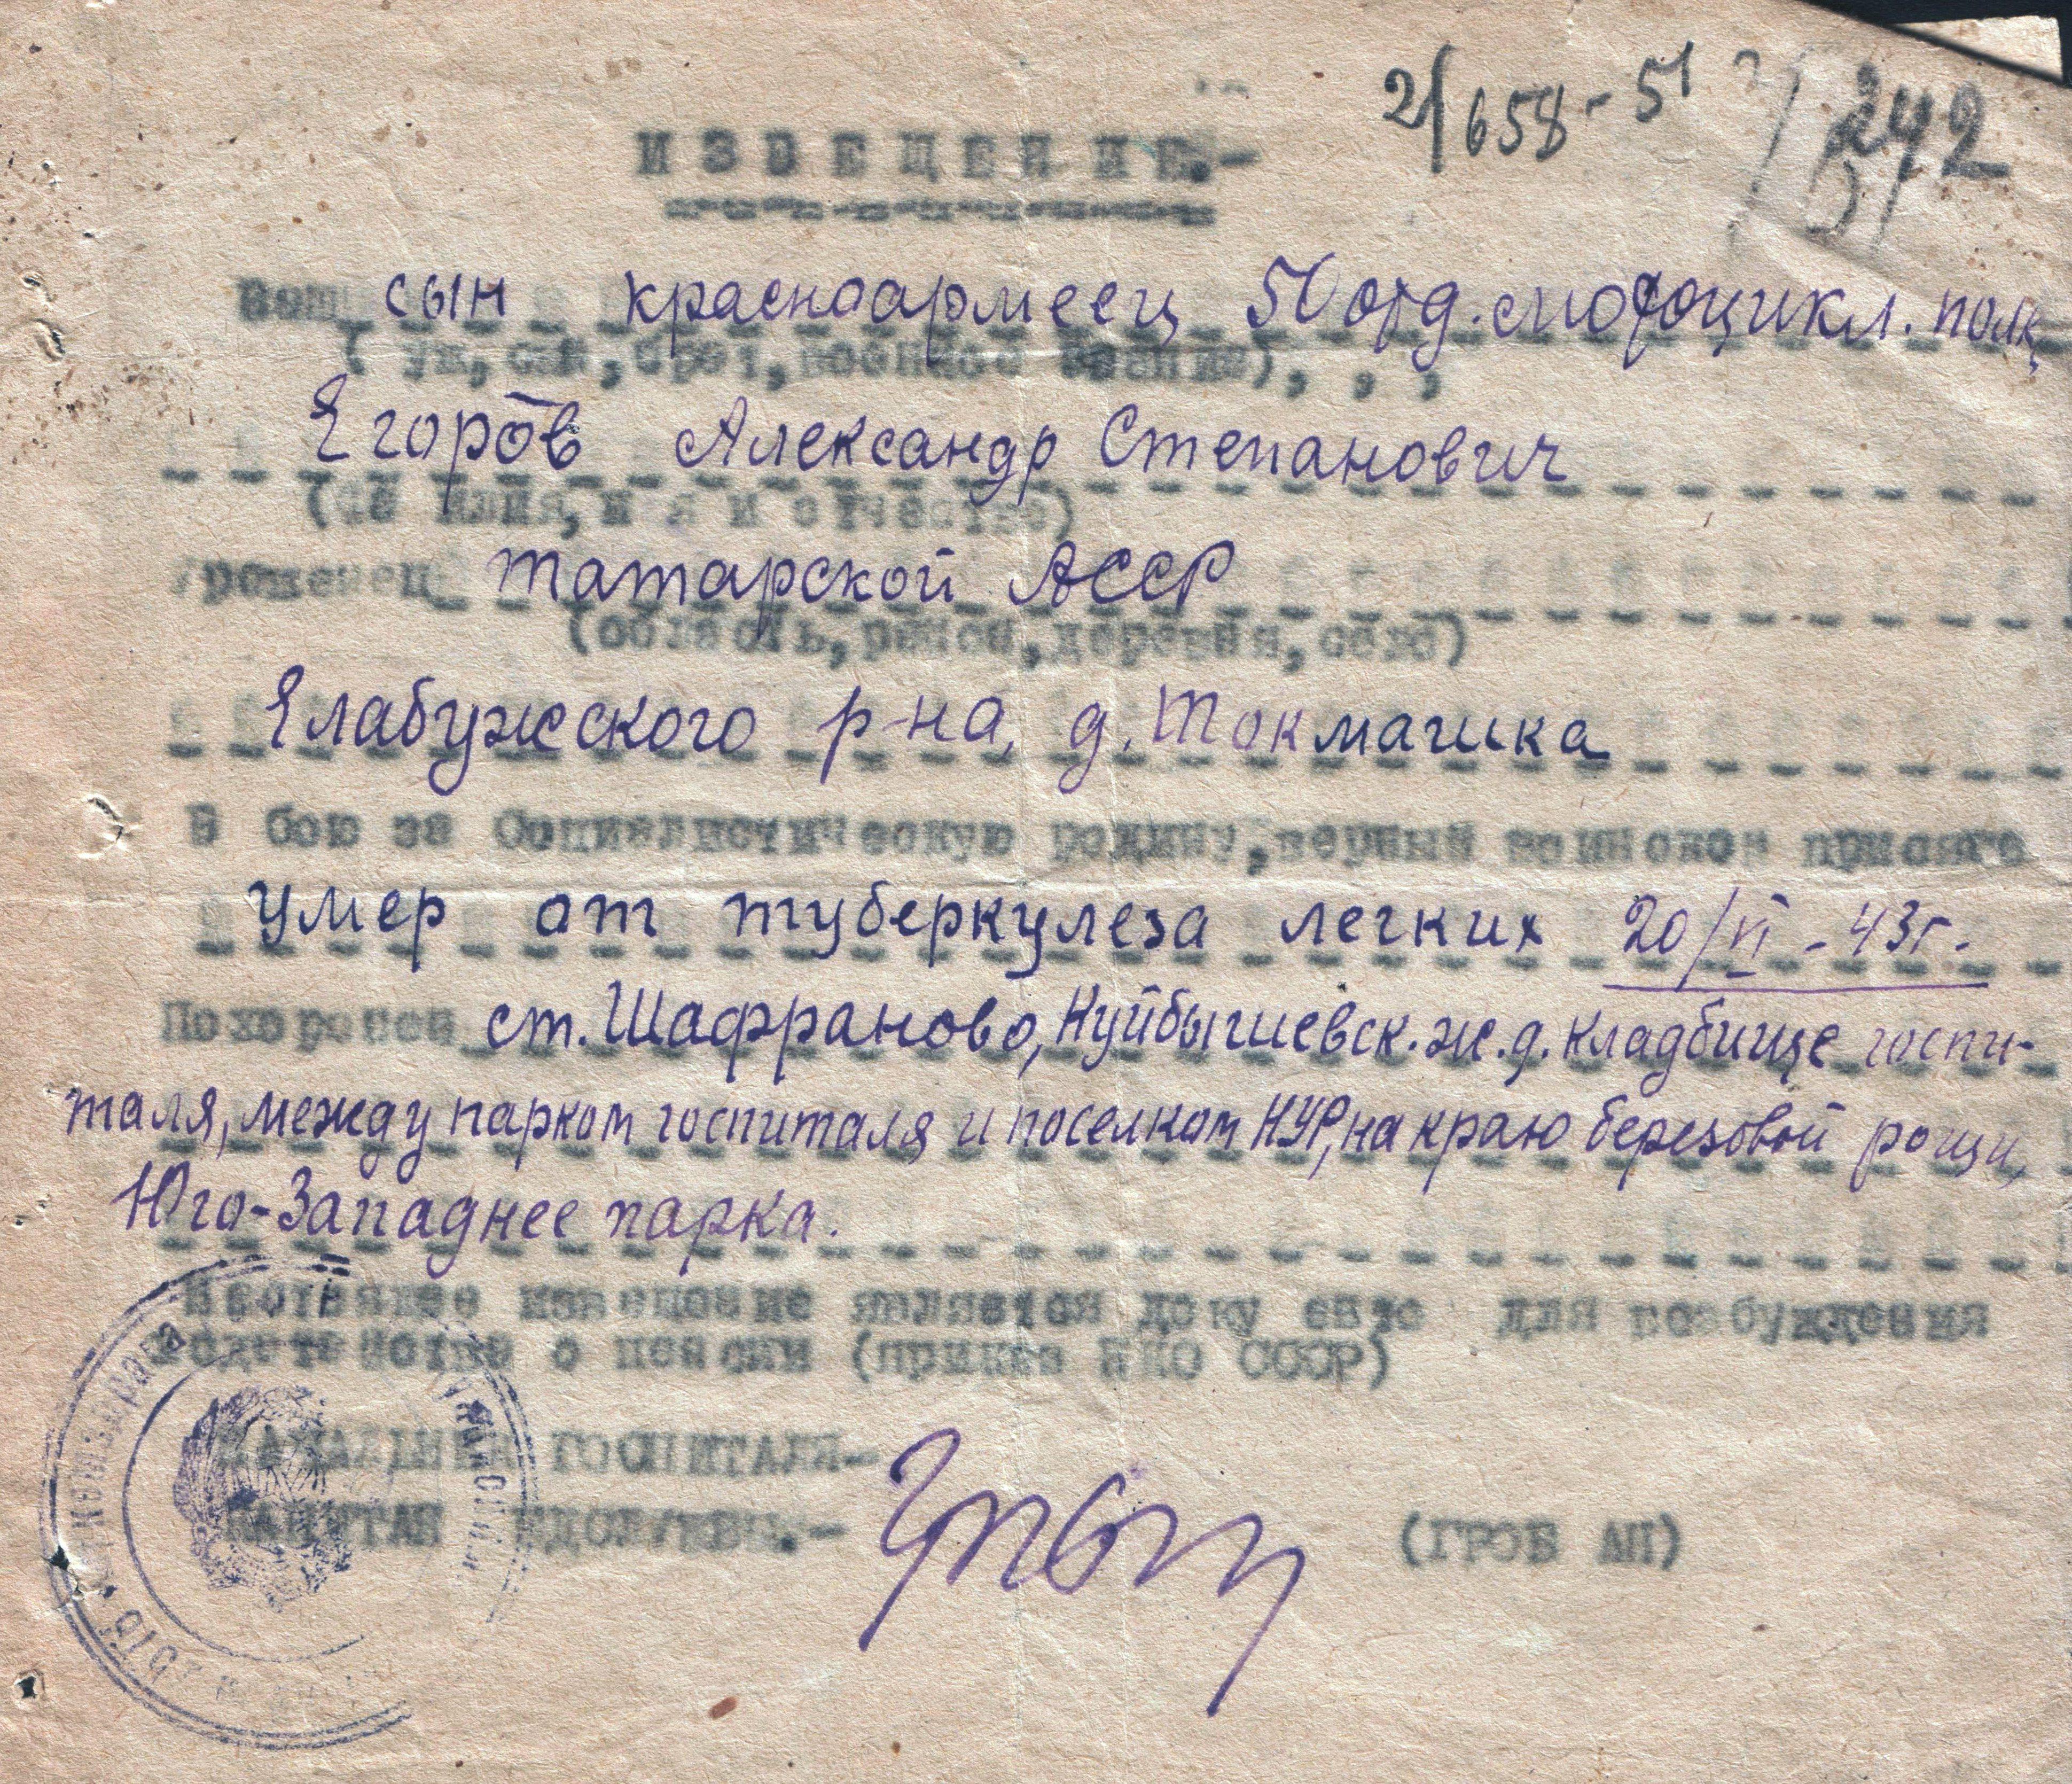 2/658-51
242
ИЗВЕЩЕНИЕ.-
Ваш сын красноармеец 50 отд. мотоцикл. полк
(муж, сын, брат, военное звание), , ,
Егоров Александр Степанович
(фамилия, имя и отчество)
Уроженец Татарской АССР
(область, район, деревня, село)
Елабужского р-на, д. Токмашка
В бою за Социалистическую родину, верный воинской присяге
умер от туберкулеза легких 20/VI-43г.
Похоронен ст. Шафраново, Куйбышевск. ж.д. кладбище госпи-
таля, между парком госпиталя и поселком НУР, на краю березовой рощи,
Юго-Западнее парка.
Настоящее извещение является документом для возбуждения
ходатайства о пенсии (приказ НКО СССР)
НАЧАЛЬНИК ГОСПИТАЛЯ-
КАПИТАН МЕДСЛУЖБЫ.-
(ГРОБ АП)
Наркомздрава